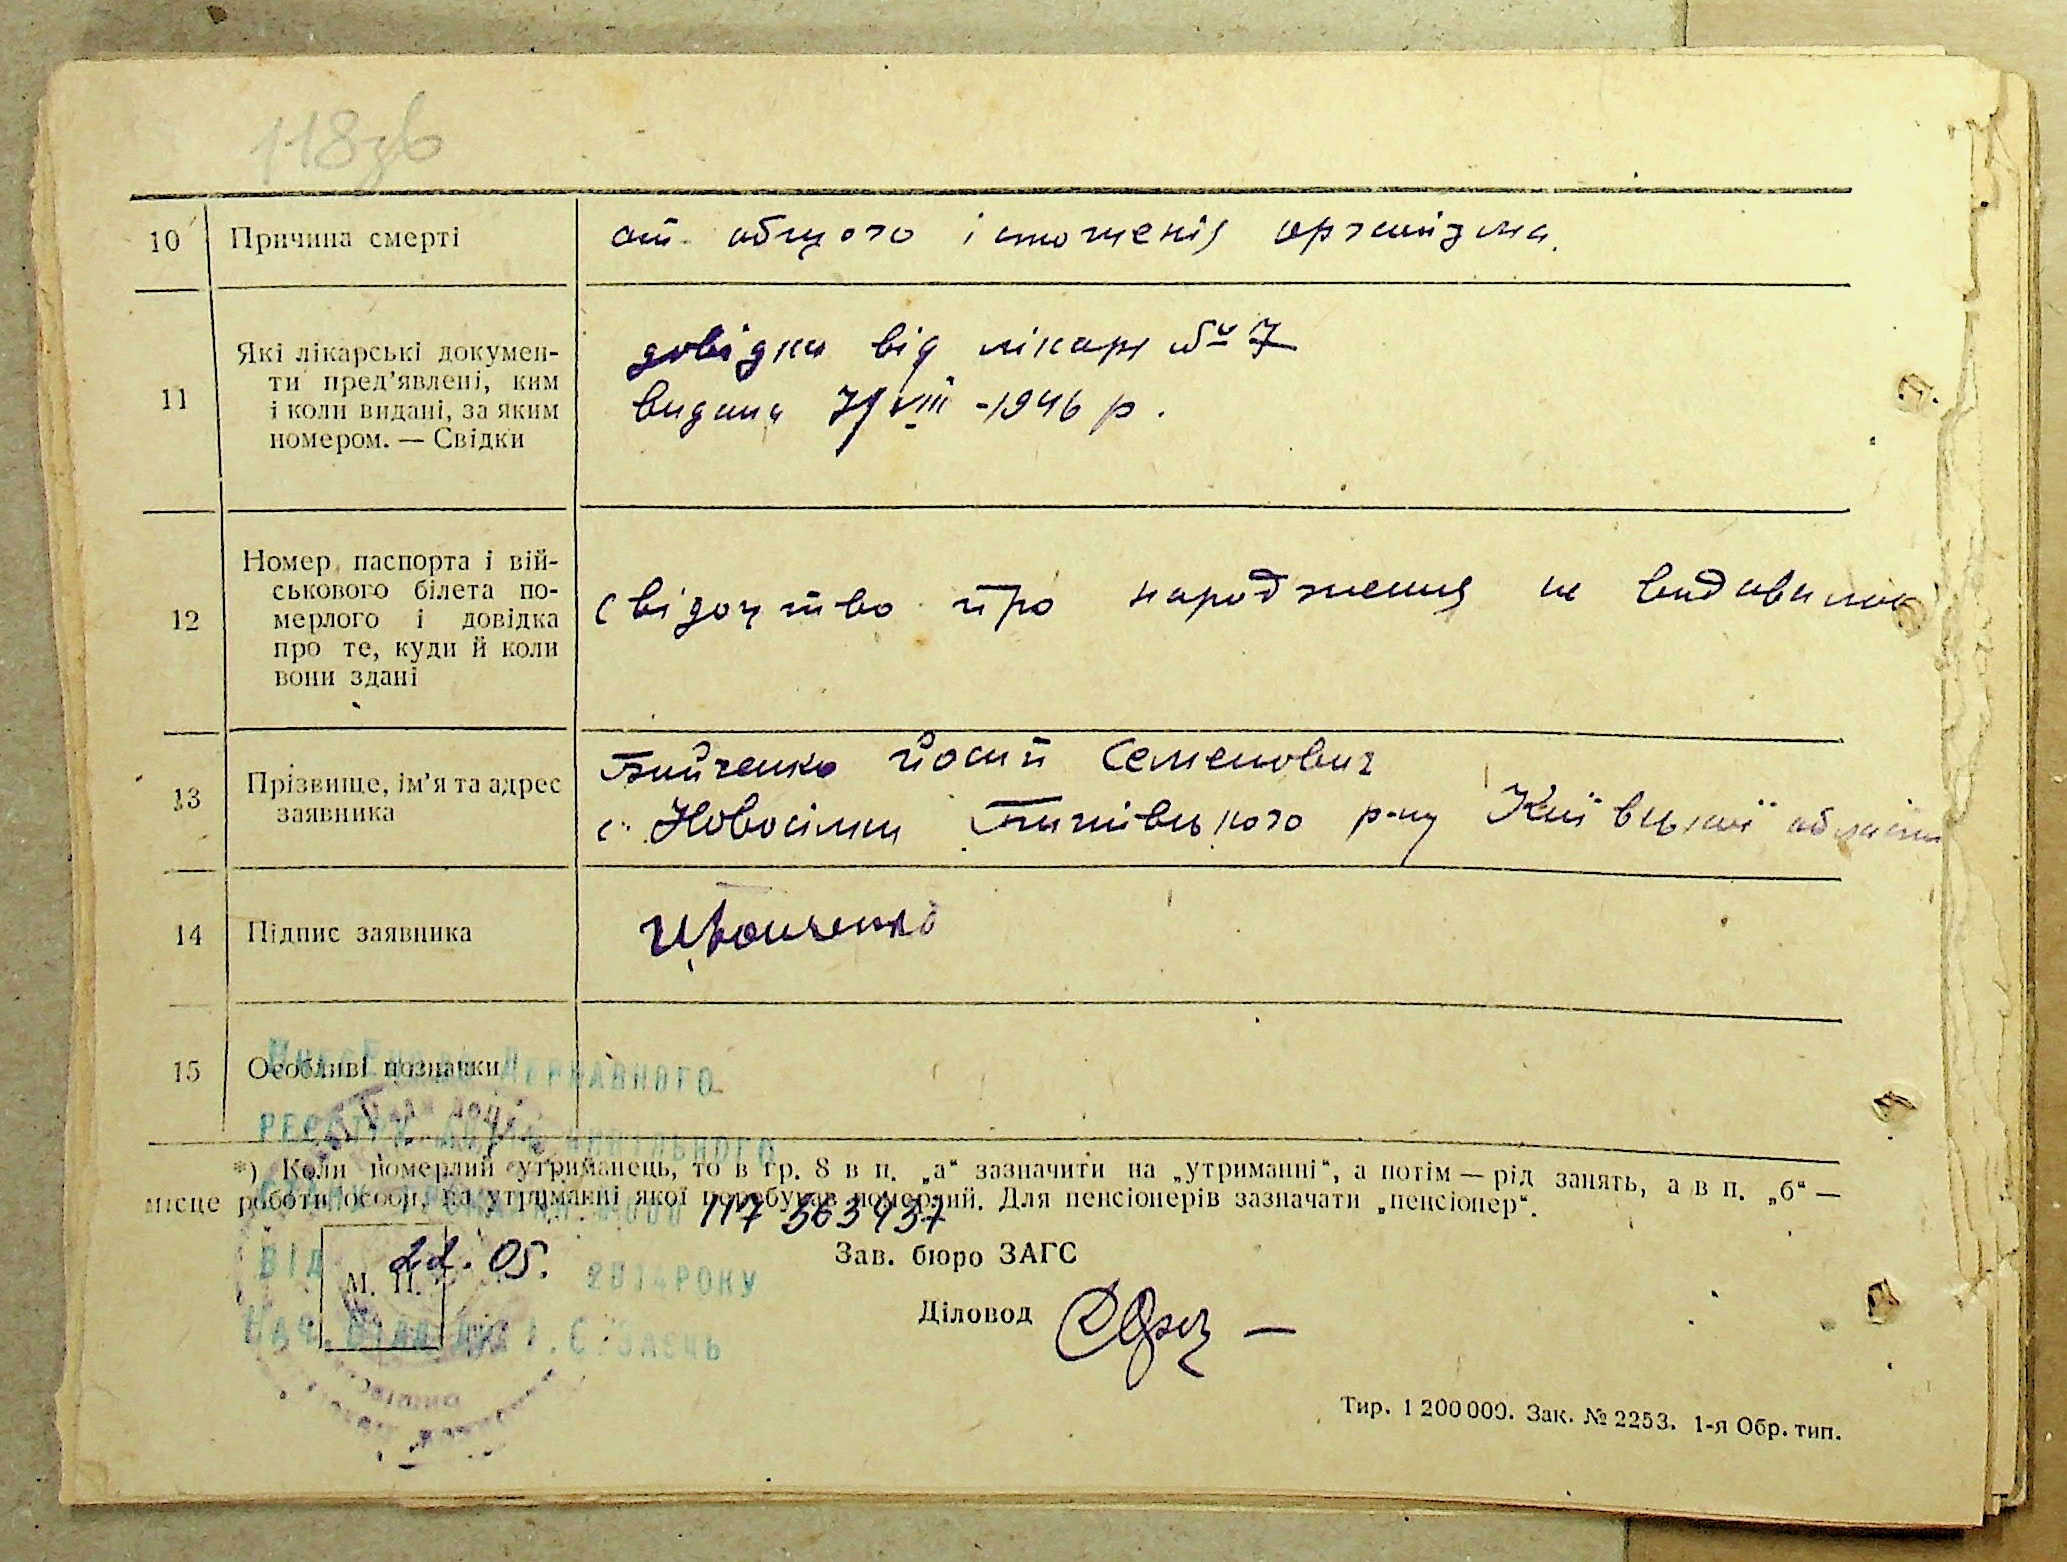 118зв
10 Причина смерті от общого істоженія організма.
11 Які лікарські докумен-
ти пред'явлені, ким
і коли видані, за яким
номером. — Свідки
довідка від лікаря № 7
видана 7/VIII -1946 р.
12 Номер паспорта і вій-
ськового білета по-
мерлого і довідка
про те, куди й коли
вони здані
свідоцтво про народження не видавалос
13 Прізвище, ім'я та адрес
заявника
Бойченко Йосип Семенович
с. Новосілки Димерського р-ну Київської області
14 Підпис заявника
15 Особливі познанки
Державного
*) Коли померлий утриманець, то в гр. 8 в п. „а“ зазначити на „утриманні“, а потім — рід занять, а в п. „б“ —
місце роботи особи, на утриманні якої перебував померлий. Для пенсіонерів зазначати „пенсіонер“.
117 563 937
Зав. бюро ЗАГС
від 22.05. 2014 року
М. П.
Діловод
Нач. відділу
Тир. 1 200 000. Зак. № 2253. 1-я Обр. тип.